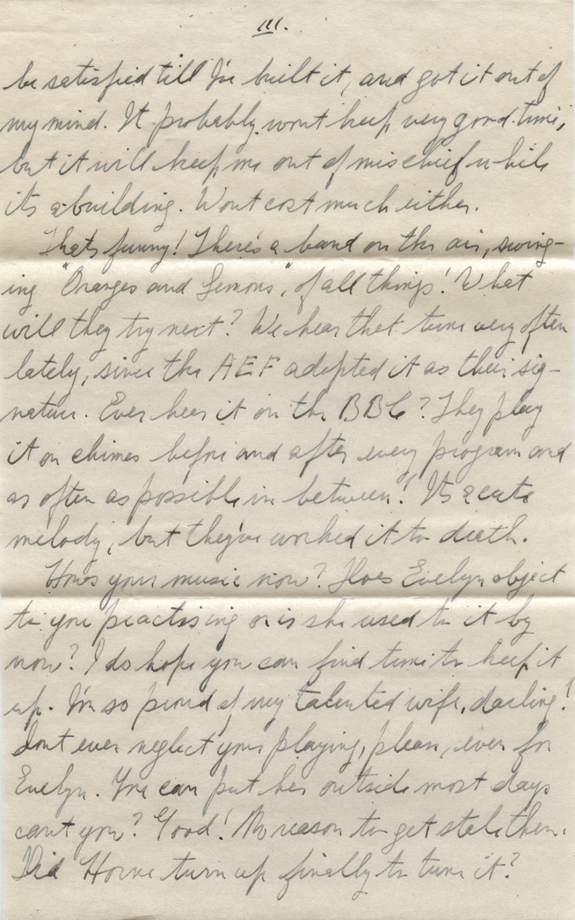 III.
be satisfied till I've built it, and got it out of
my mind. It probably wont keep very good time,
but it will keep me out of mischief while
its abuilding. Wont cost much either.
Thats funny! There's a band on the air, swing-
ing "Oranges and Lemons", of all things! What
will they try next? We hear that tune very often
lately, since the AEF adopted it as their sig-
nature. Ever hear it on the BBC? They play
it on chimes before and after every program and
as often as possible in between! Its a cute
melody, but they've worked it to death.
Hows your music now? Does Evelyn object
to you practising or is she used to it by
now? I do hope you can find time to keep it
up. I'm so proud of my talented wife, darling!
Dont ever neglect your playing, please, even for
Evelyn. You can put her outside most days
cant you? Good! No reason to get stale then.
Did Horne turn up finally to tune it?